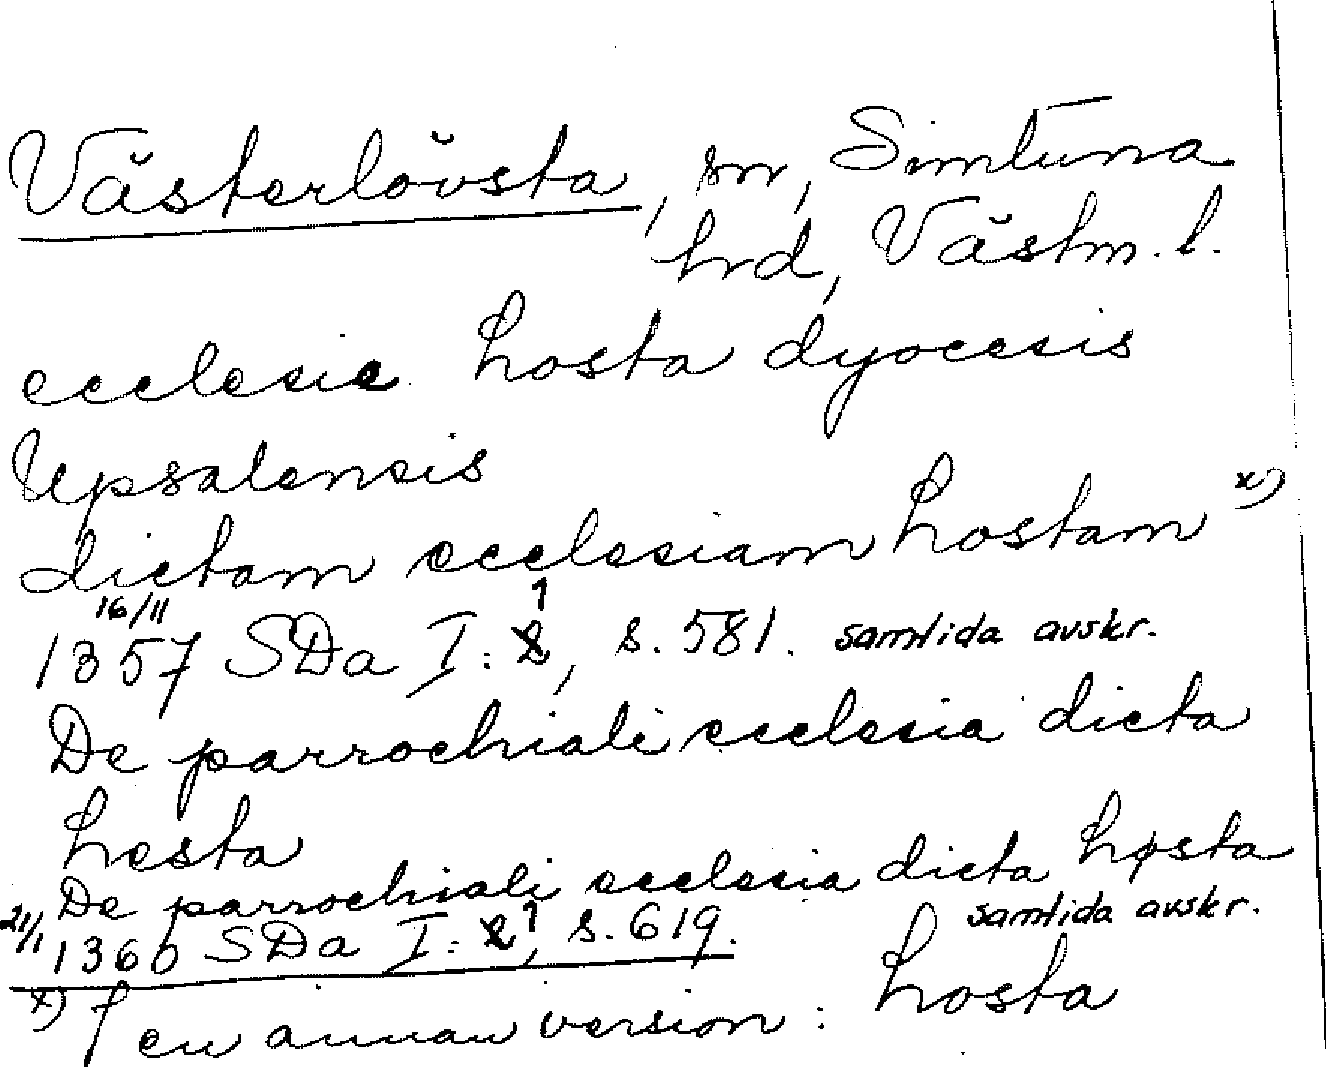 Västerlövsta, sn, Simtuna
hrd, Västm. l.
ecclesie Losta dyocesis
Upsalensis
dictam ecclesiam Lostam x)
16/11 1
1357 SDa I: 2, s. 581. samtida avskr.
De parrochiali ecclesia dicta
Lesta
De parrochiali ecclesia dicta Løsta
21/1 1360 SDa I: 2 1, s. 619. samtida avskr.
x) I en annan version: Losta